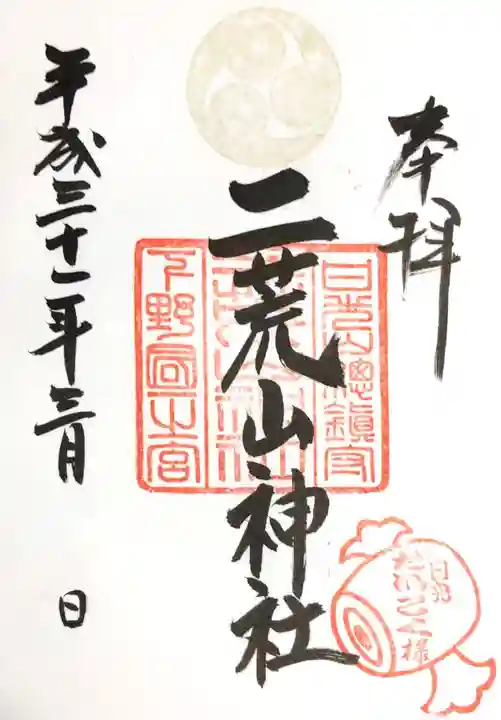 奉拝
二荒山神社
日光山總鎮守
下野國一之宮
平成三十一年三月　日
日光
だいこく様